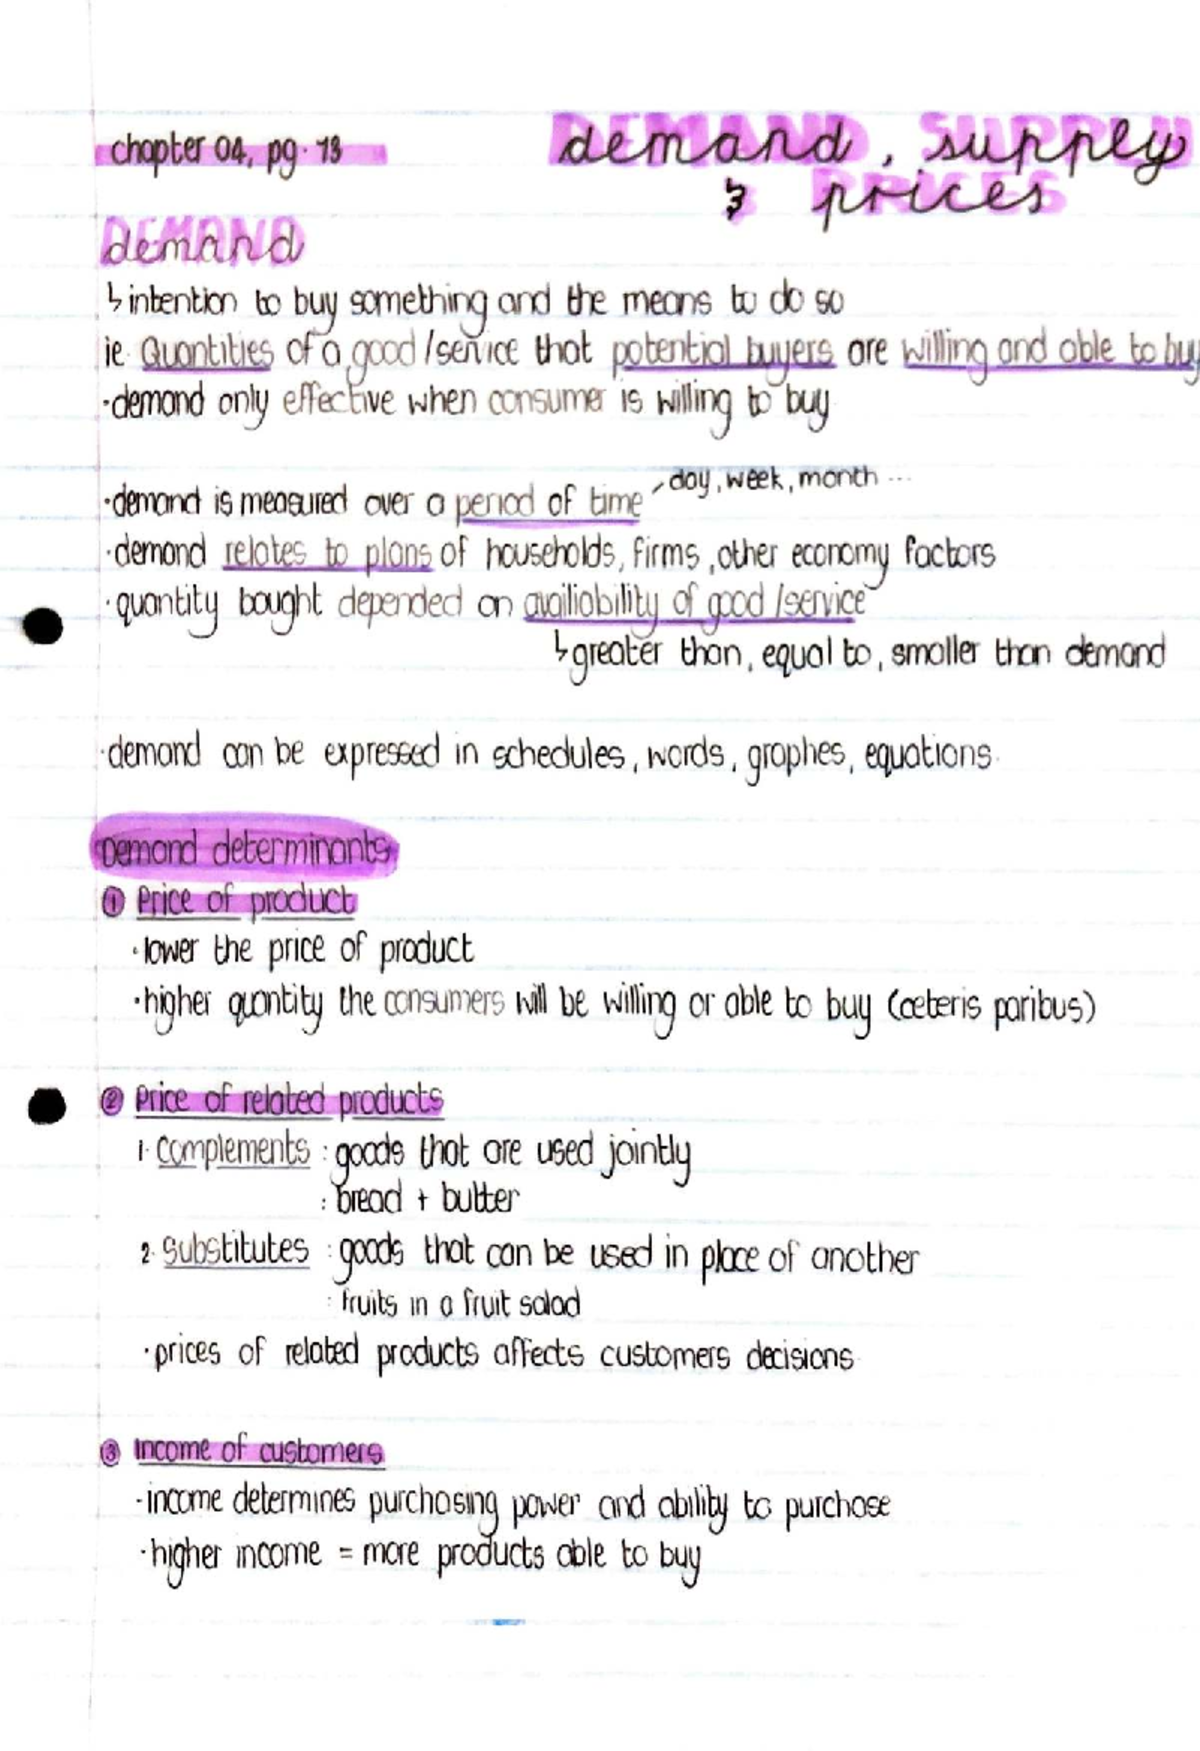 chapter 04, pg. 73
demand, supply
& prices
demand
↳ intention to buy something and the means to do so
ie. Quantities of a good/service that potential buyers are willing and able to buy
·demand only effective when consumer is willing to buy
·demand is measured over a period of time - day, week, month ...
·demand relates to plans of households, firms, other economy factors
·quantity bought depended on availiability of good/service
↳ greater than, equal to, smaller than demand
·demand can be expressed in schedules, words, graphes, equations.
Demand determinants
① Price of product
·lower the price of product
·higher quantity the consumers will be willing or able to buy (ceteris paribus)
② Price of related products
1. Complements : goods that are used jointly
: bread + butter
2. Substitutes : goods that can be used in place of another
: fruits in a fruit salad
·prices of related products affects customers decisions
③ Income of customers
·income determines purchasing power and ability to purchase
·higher income = more products able to buy